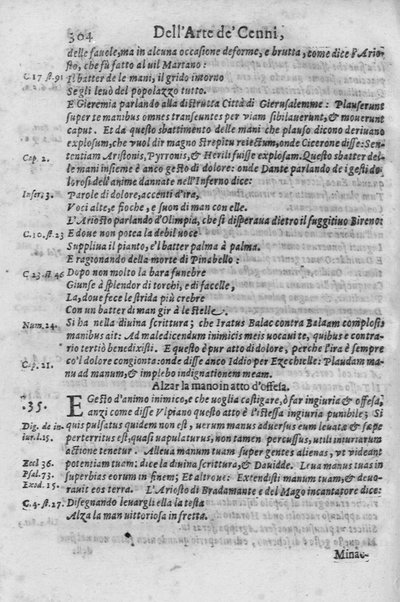 304 Dell'Arte de' Cenni,
delle fauole, ma in alcuna occasione deforme, e brutta, come dice l'Ario-
sto, che fù fatto al uil Martano:
C. 17 st. 91 Il batter de le mani, il grido intorno
Se gli leuò del popolazzo tutto.
E Gieremia parlando alla distrutta Città di Gierusalemme: Plauserunt
super te manibus omnes transeuntes per uiam sibilauerunt, & mouerunt
caput. Et da questo sbattimento delle mani che plauso dicono deriuano
explosum, che vuol dir magno strepitu reiectum, onde Cicerone disse: Sen-
Cap. 2. tentiam Aristonis, Pyrronis, & Herili fuisse explosam. Questo sbatter del-
le mani insieme è anco gesto di dolore: onde Dante parlando de i gesti do
lorosi dell'anime dannate nell'Inferno dice:
Infer. 3. Parole di dolore, accenti d'ira,
Voci alte, fioche, e suon di man con elle.
L'Ariosto parlando d'Olimpia, che si disperaua dietro il fuggitiuo Bireno:
C. 10. st. 23 E doue non potea la debil uoce
Supplìua il pianto, e'l batter palma à palma.
E ragionando della morte di Pinabello:
C 23 st. 46 Dopo non molto la bara funebre
Giunse à splendor di torchi, e di facelle,
Là, doue fece le strida più crebre
Con un batter di man gir à le stelle.
Num. 24. Si ha nella diuina scrittura; che Iratus Balac contra Balaam complosis
manibus ait: Ad maledicendum inimicis meis uocaui te, quibus e contra-
rio tertiò benedixisti. E questo è pur atto di dolore, perche l'ira è sempre
C. 21. co'l dolore congionta: onde disse anco Iddio per Ezechielle: Plaudam ma-
nu ad manum, & implebo indignationem meam.
Alzar la mano in atto d'offesa.
.35. E Gesto d'animo inimico, e che uoglia castigare, ò far ingiuria & offesa,
anzi come disse Vlpiano questo atto è l'istessa ingiuria punibile; Si
Dig. de in- quis pulsatus quidem non est, uerum manus aduersus eum leuatæ & sæpe
iur. l. 15. perterritus est, quasi uapulaturus, non tamen percussus, utili iniuriarum
actione tenetur. Alleua manum tuam super gentes alienas, ut uideant
Eccl 36. potentiam tuam: dice la diuina scrittura, & Dauidde. Leua manus tuas in
Psal. 73. superbias eorum in finem; Et altroue: Extendisti manum tuam, & deuo-
Exod. 15. rauit eos terra. L'Ariosto di Bradamante e del Mago incantatore dice:
C. 4. st. 27. Disegnando leuargli ella la testa
Alza la man uittoriosa in fretta.
Minac-